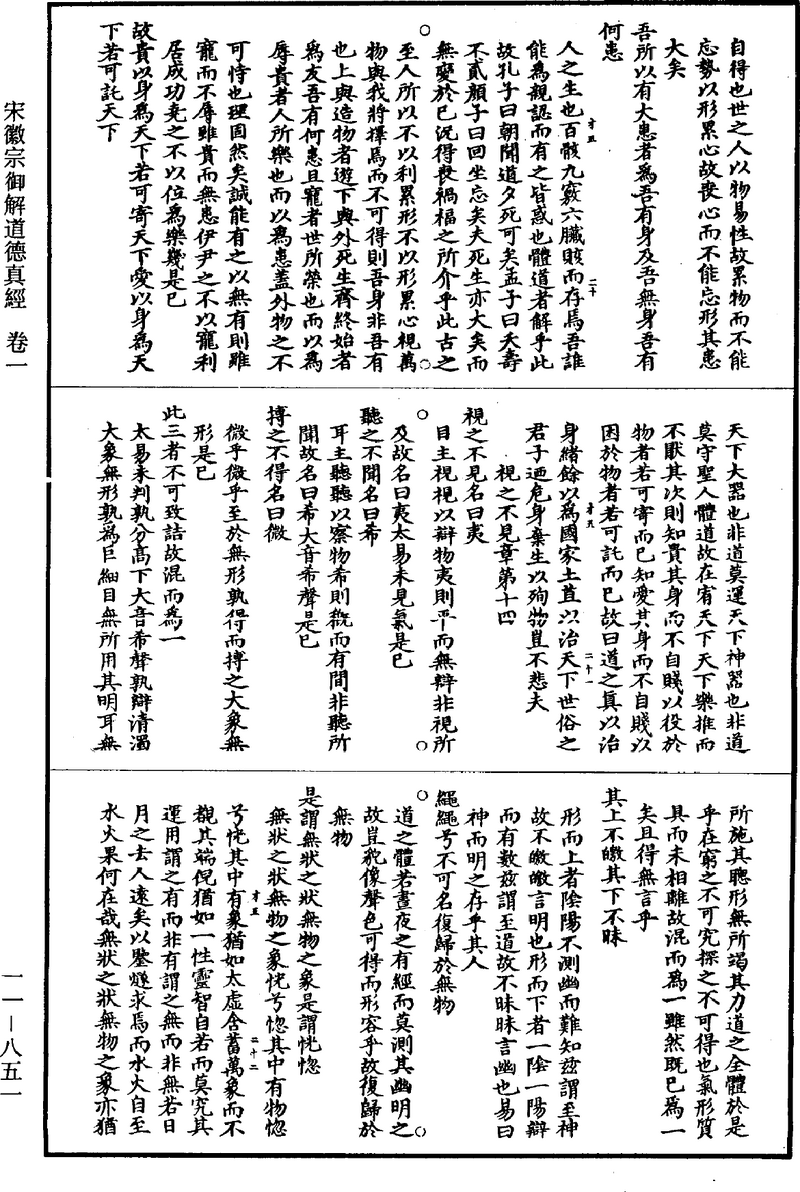 宋徽宗御解道德真經　卷一
一一－八五一
自得也世之人以物易性故累物而不能
忘勢以形累心故喪心而不能忘形其患
大矣
吾所以有大患者為吾有身及吾無身吾有
何患
人之生也百骸九竅六臟賅而存焉吾誰
能為親認而有之皆惑也體道者解乎此
故孔子曰朝聞道夕死可矣孟子曰夭壽
不貳顏子曰回坐忘矣夫死生亦大矣而
無變於己況得喪禍福之所介乎此古之
至人所以不以利累形不以形累心視萬
物與我將擇焉而不可得則吾身非吾有
也上與造物者遊下與外死生齊終始者
為友吾有何患且寵者世所榮也而以為
辱貴者人所樂也而以為患蓋外物之不
可恃也理固然矣誠能有之以無有則雖
寵而不辱雖貴而無患伊尹之不以寵利
居成功堯之不以位為樂幾是已
故貴以身為天下若可寄天下愛以身為天
下若可託天下
天下大器也非道莫運天下神器也非道
莫守聖人體道故在宥天下天下樂推而
不厭其次則知貴其身而不自賤以役於
物者若可寄而已知愛其身而不自賤以
困於物者若可託而已故曰道之真以治
身緒餘以為國家土苴以治天下世俗之
君子迺危身棄生以殉物豈不悲夫
視之不見章第十四
視之不見名曰夷
目主視視以辯物夷則平而無辯非視所
及故名曰夷太易未見氣是已
聽之不聞名曰希
耳主聽聽以察物希則概而有間非聽所
聞故名曰希大音希聲是已
搏之不得名曰微
微乎微乎至於無形孰得而搏之大象無
形是已
此三者不可致詰故混而為一
太易未判孰分高下大音希聲孰辯清濁
大象無形孰為巨細目無所用其明耳無
所施其聰形無所竭其力道之全體於是
乎在窮之不可究探之不可得也氣形質
具而未相離故混而為一雖然既已為一
矣且得無言乎
其上不皦其下不昧
形而上者陰陽不測幽而難知茲謂至神
故不皦皦言明也形而下者一陰一陽辯
而有數茲謂至道故不昧昧言幽也易曰
神而明之存乎其人
繩繩兮不可名復歸於無物
道之體若晝夜之有經而莫測其幽明之
故豈貌像聲色可得而形容乎故復歸於
無物
是謂無狀之狀無物之象是謂恍惚
無狀之狀無物之象恍兮惚其中有物惚
兮恍其中有象猶如太虛含蓄萬象而不
覩其端倪猶如一性靈智自若而莫究其
運用謂之有而非有謂之無而非無若日
月之去人遠矣以鑒燧求焉而水火自至
水火果何在哉無狀之狀無物之象亦猶